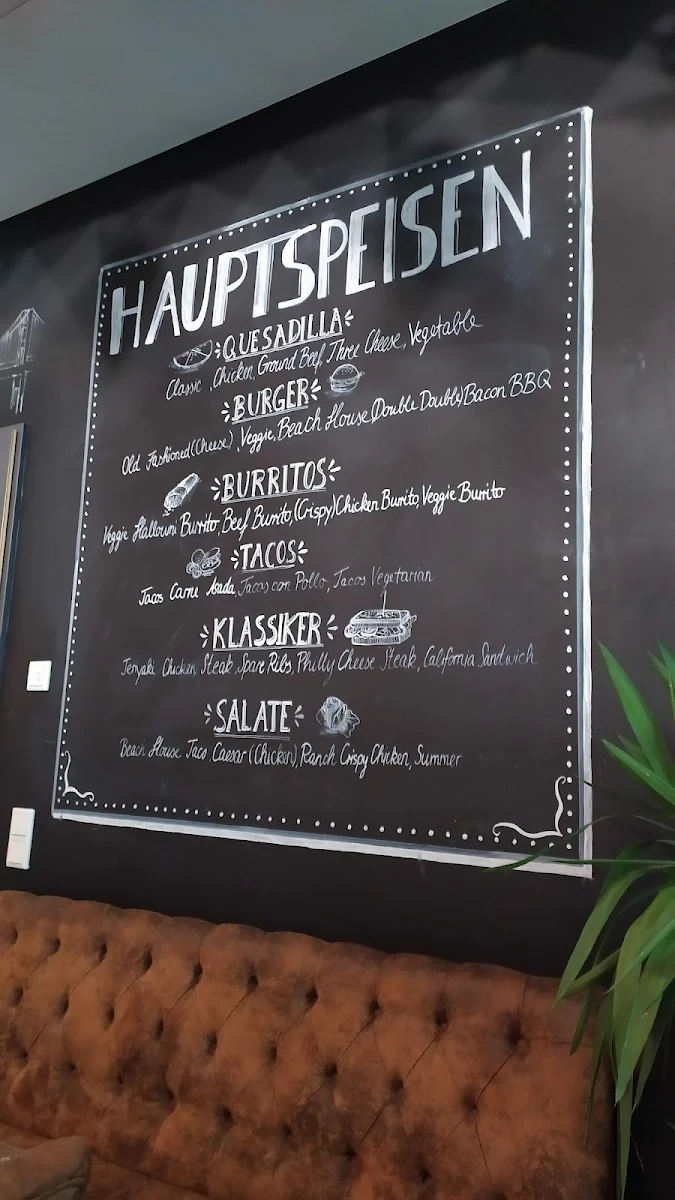 HAUPTSPEISEN
QUESADILLA
Classic, Chicken, Ground Beef, Three Cheese, Vegetable
BURGER
Old Fashioned (Cheese), Veggie, Beach House Double Double, Bacon BBQ
BURRITOS
Veggie Halloumi Burrito, Beef Burrito, (Crispy) Chicken Burrito, Veggie Burrito
TACOS
Tacos Carne Asada, Tacos con Pollo, Tacos Vegetarian
KLASSIKER
Teryaki Chicken, Steak, Spare Ribs, Philly Cheese Steak, California Sandwich
SALATE
Beach House Taco, Caesar (Chicken), Ranch Crispy Chicken, Summer